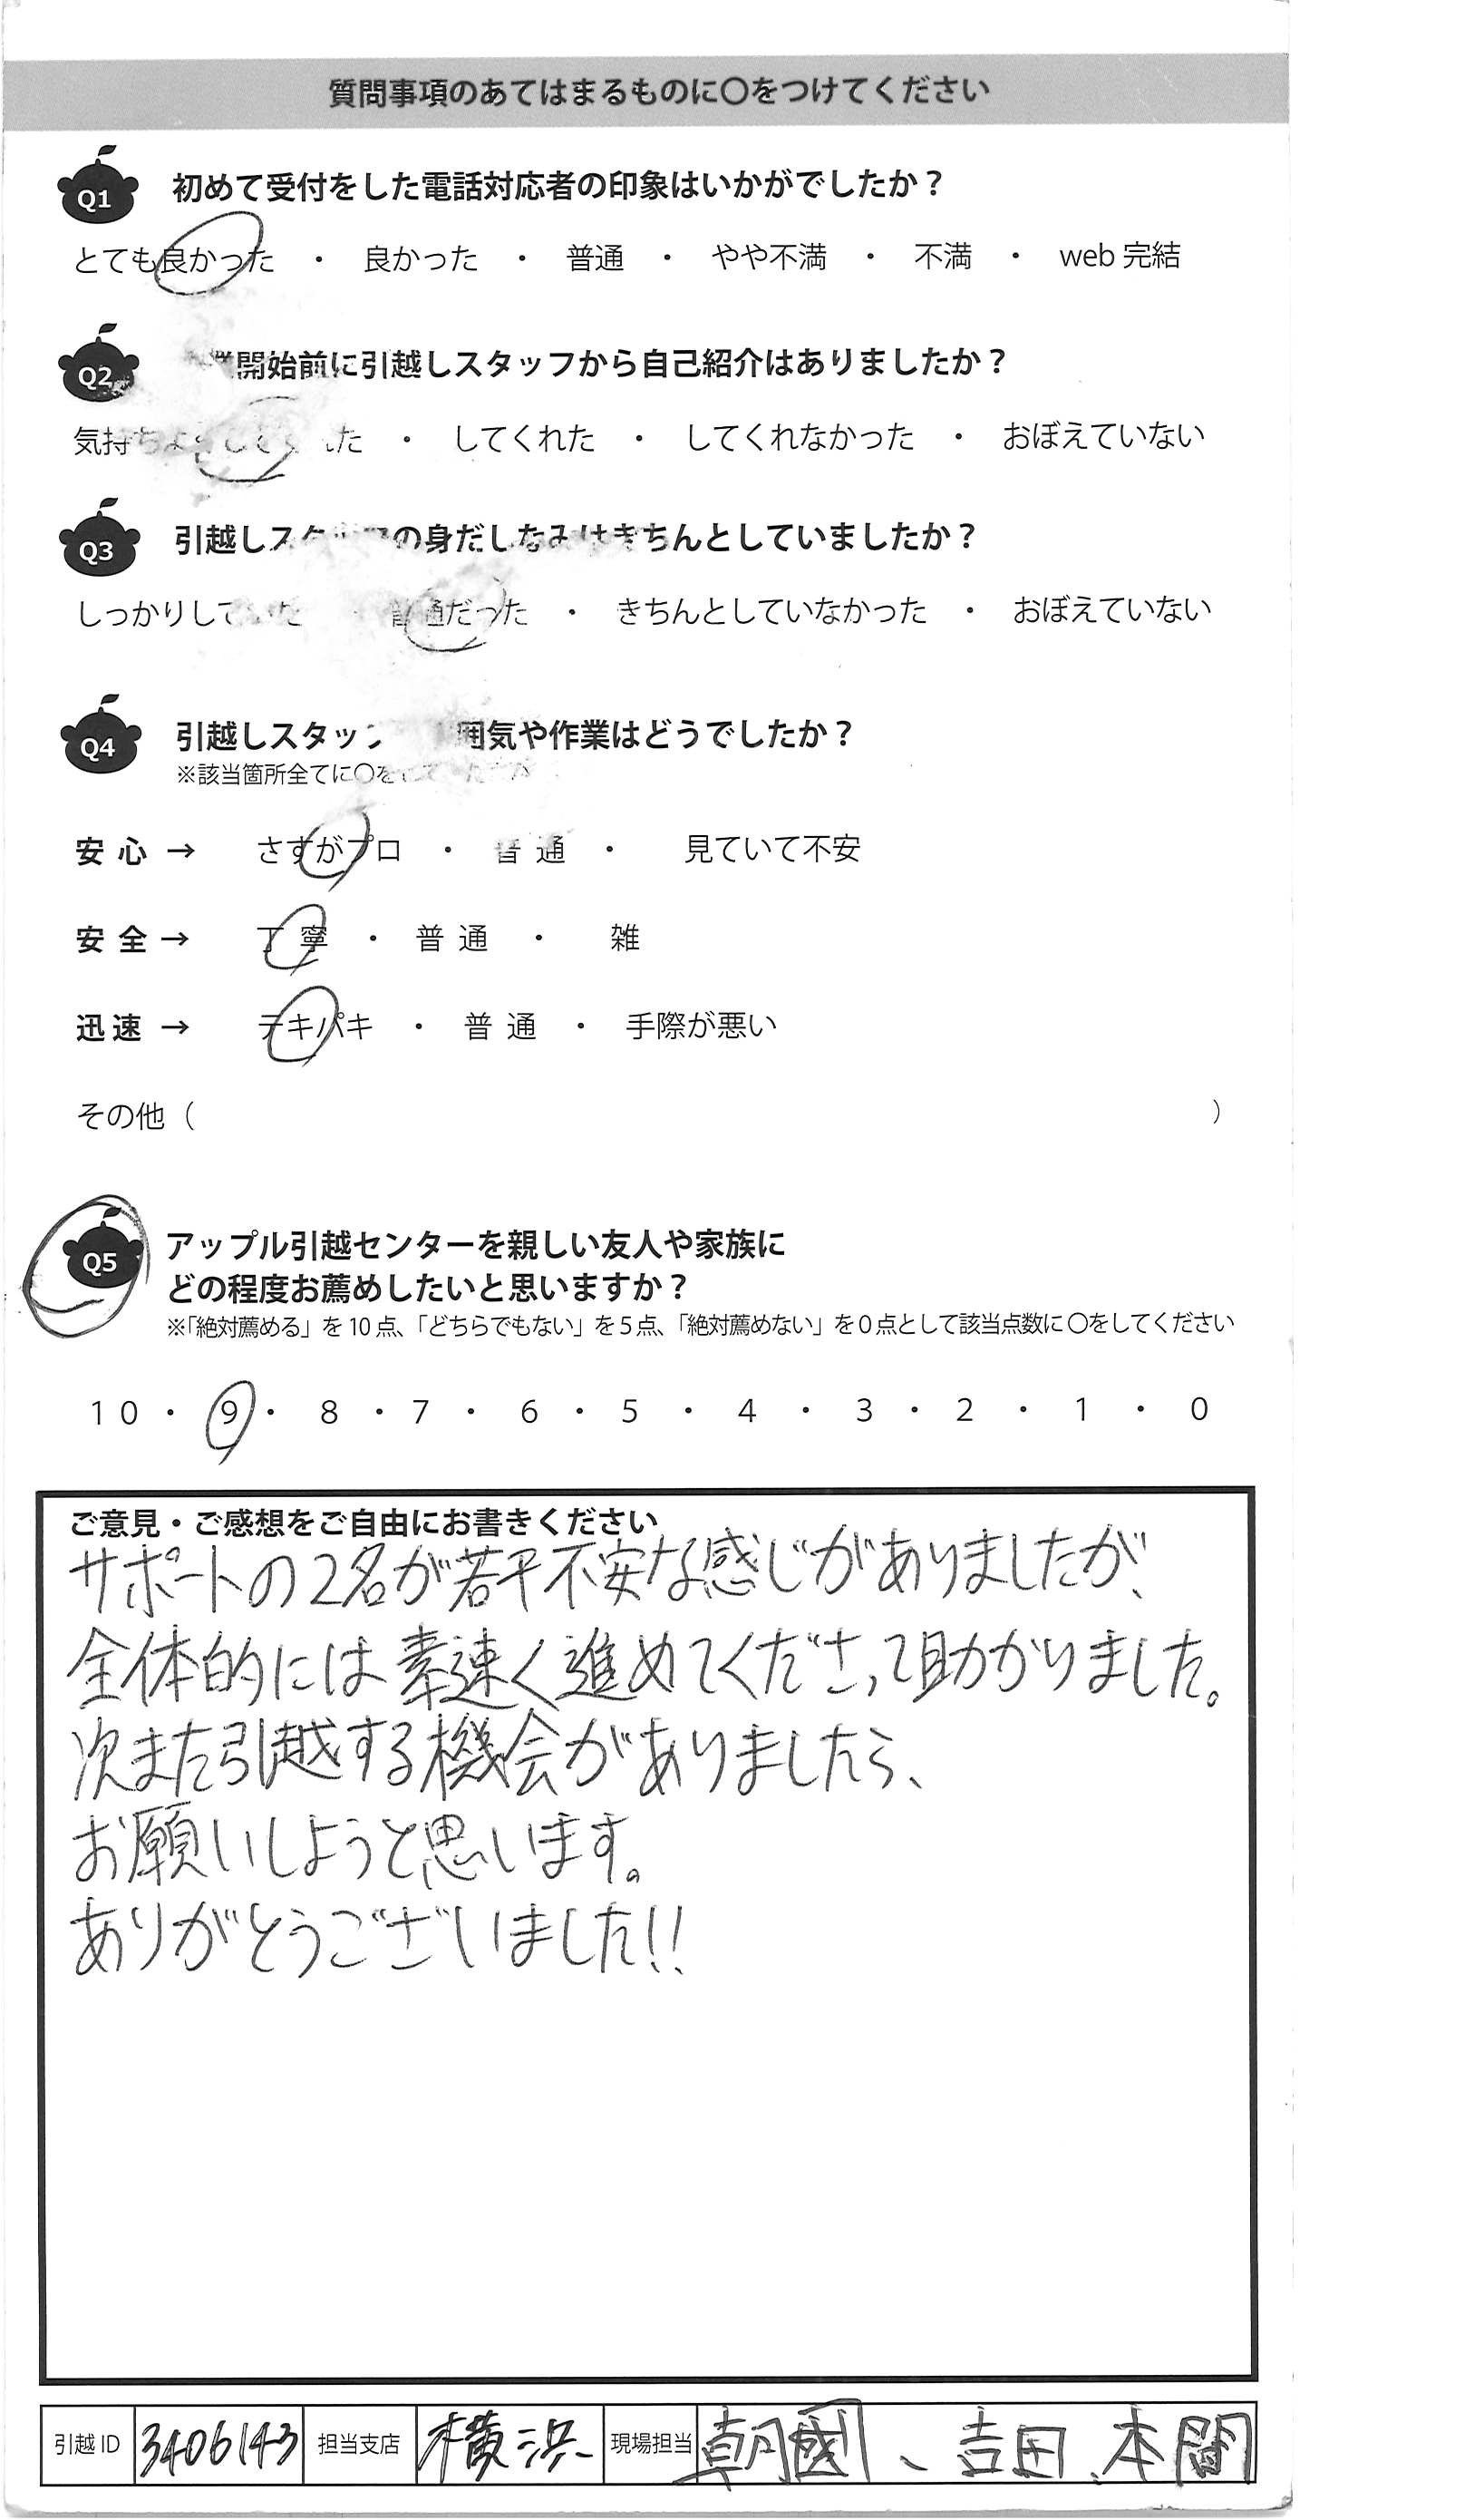 質問事項のあてはまるものに〇をつけてください
Q1 初めて受付をした電話対応者の印象はいかがでしたか？
とても良かった ・ 良かった ・ 普通 ・ やや不満 ・ 不満 ・ web 完結
Q2 業開始前に引越しスタッフから自己紹介はありましたか？
気持ちよくしてくれた ・ してくれた ・ してくれなかった ・ おぼえていない
Q3 引越しスタッフの身だしなみはきちんとしていましたか？
しっかりしていた 普通だった ・ きちんとしていなかった ・ おぼえていない
Q4 引越しスタッフ 囲気や作業はどうでしたか？
※該当箇所全てに〇を
安心 → さすがプロ ・ 普通 ・ 見ていて不安
安全 → 丁寧 ・ 普通 ・ 雑
迅速 → テキパキ ・ 普通 ・ 手際が悪い
その他（ ）
Q5 アップル引越センターを親しい友人や家族に
どの程度お薦めしたいと思いますか？
※「絶対薦める」を10点、「どちらでもない」を5点、「絶対薦めない」を0点として該当点数に〇をしてください
10 ・ 9 ・ 8 ・ 7 ・ 6 ・ 5 ・ 4 ・ 3 ・ 2 ・ 1 ・ 0
ご意見・ご感想をご自由にお書きください
サポートの2名が若干不安な感じがありましたが、
全体的には素速く進めてくださって助かりました。
次また引越する機会がありましたら、
お願いしようと思います。
ありがとうございました!!
引越ID 3406143 担当支店 横浜 現場担当 朝國、吉田、本間